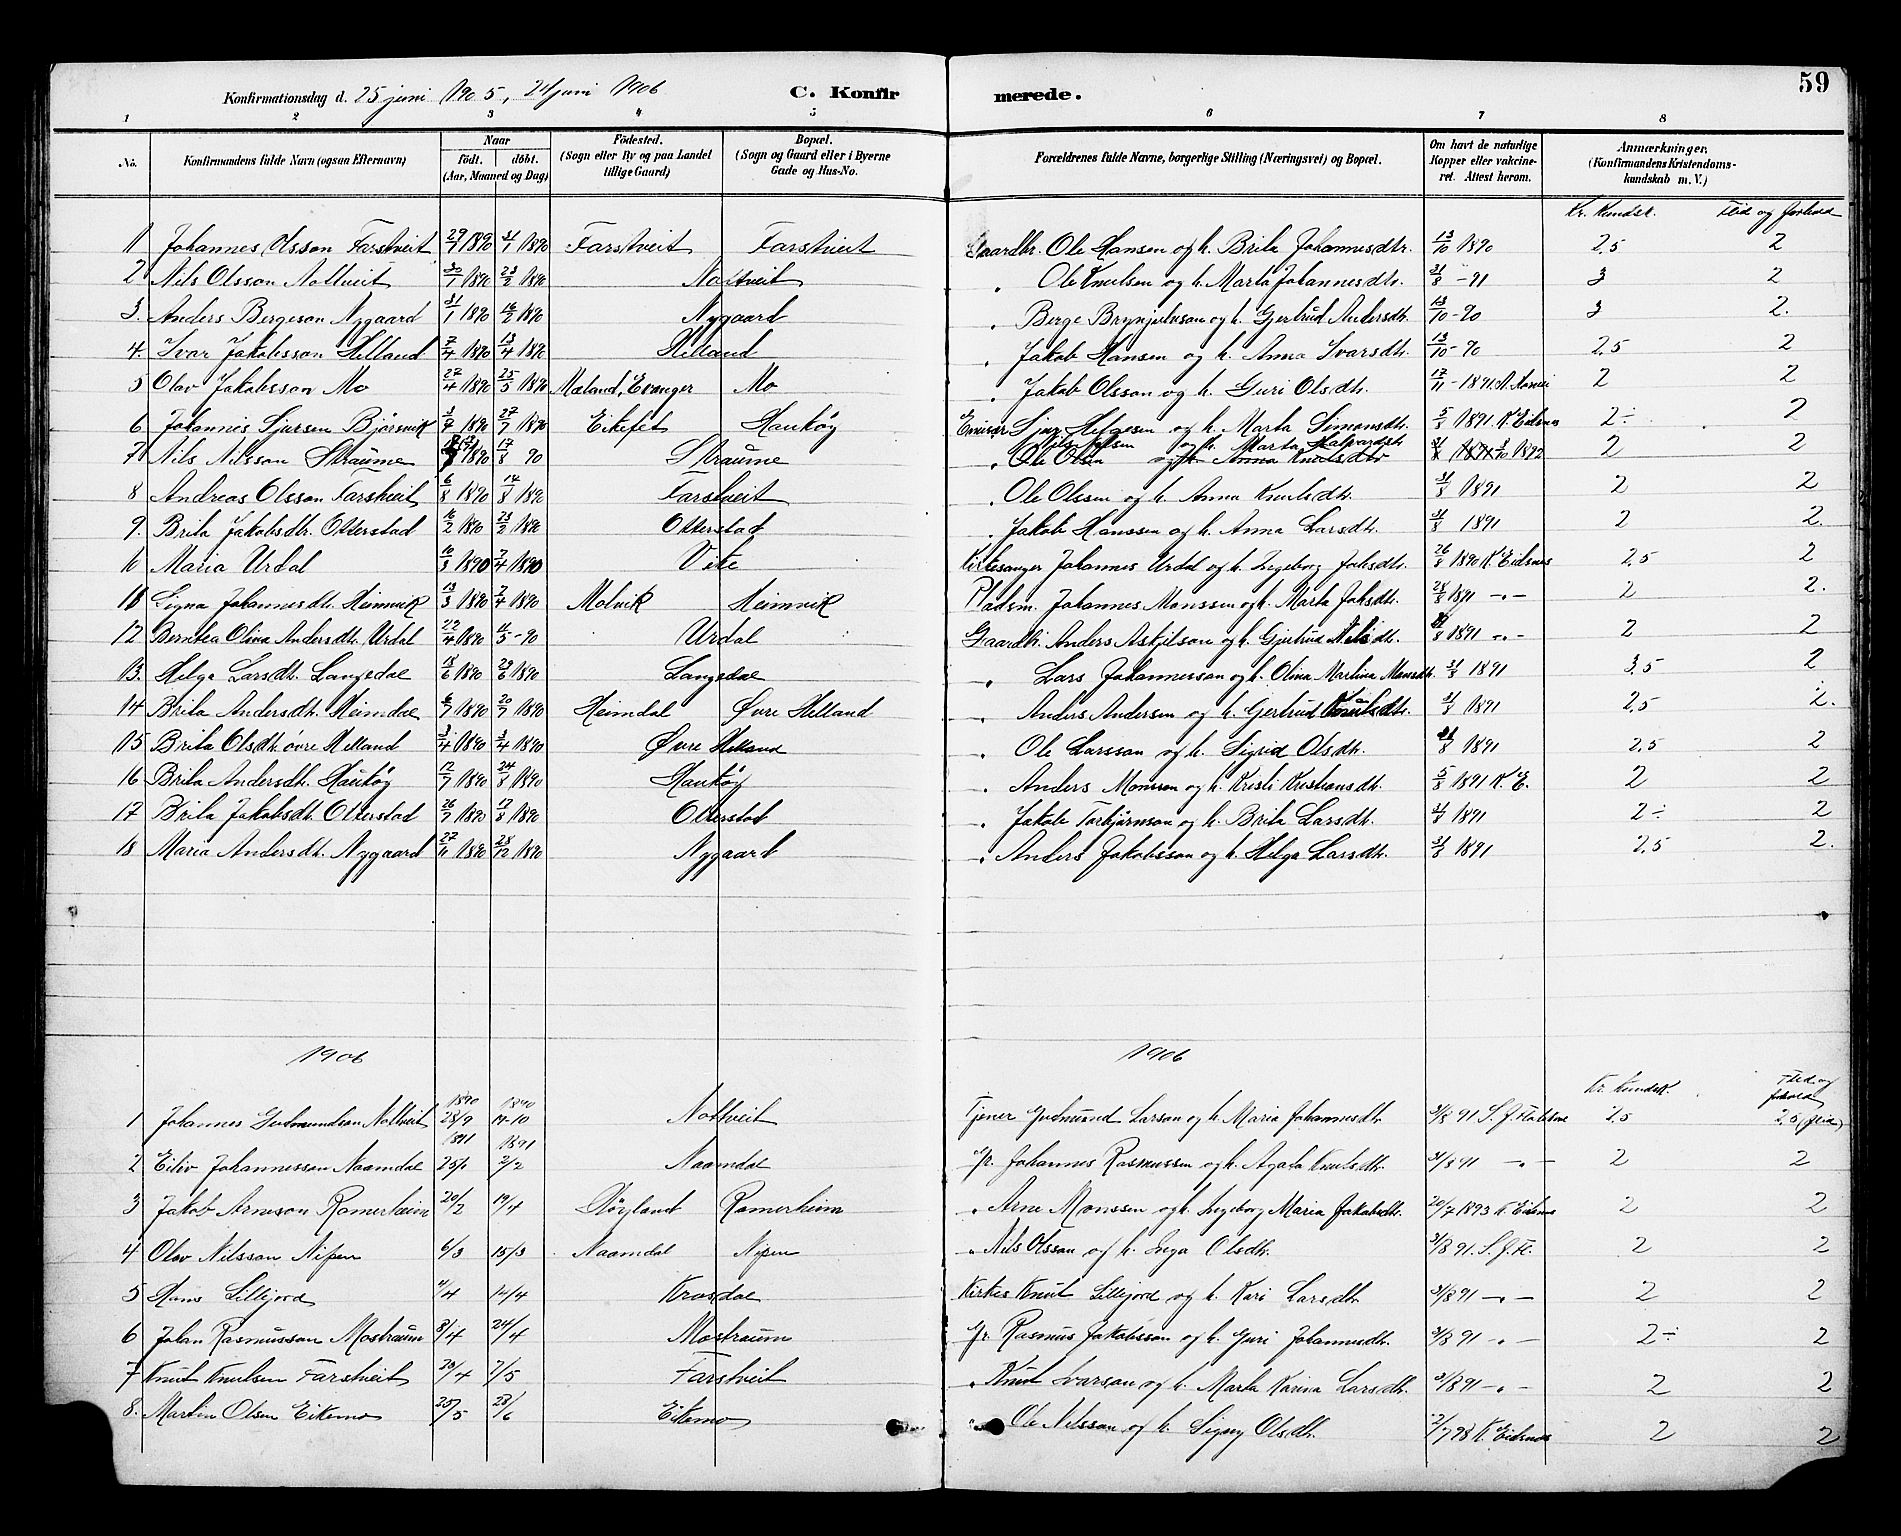 59
Konfirmationsdag d. 25 juni 1905, 24 juni 1906 C. Konfirmerede.
1 2 3 4 5 6 7 8
No. Konfirmandens fulde Navn (ogsaa Efternavn) Naar födt. döbt. (Aar, Maaned og Dag) Födested. (Sogn eller By og paa Landet tillige Gaard) Bopæl. (Sogn og Gaard eller i Byerne Gade og Hus-No. Forældrenes fulde Navne, borgerlige Stilling (Næringsvei) og Bopæl. Om havt de naturlige Kopper eller vakcineret. Attest herom. Anmærkninger. (Konfirmandens Kristendomskundskab m. V.)
Kr. Kundsk. Flid og forhold
1 Johannes Olsson Farstveit 29/7 1890 31/7 1890 Farstveit Farstveit Gaardbr. Ole Hansen og h. Brita Johannesdtr. 13/10 1890 2,5 2
2 Nils Olsson Nottveit 30/1 1890 23/2 1890 Nottveit " Ole Knutsen og h. Marta Johannesdtr. 31/8 - 91 3 2
3. Anders Bergeson Nygaard 31/1 1890 16/2 1890 Nygaard " Berge Brynjulvson og h. Gjertrud Andersdtr. 13/10 - 90 3 2.
4. Ivar Jakobsson Helland 7/4 1890 13/4 1890 Helland " Jakob Hansen og h. Anna Ivarsdtr. 13/10 - 90 2,5 2
5 Olav Jakobsson Mo 27/4 1890 25/5 1890 Mæland, Evanger Mo " Jakob Olsson og h. Guri Olsdtr. 17/11 - 1891 2 2
6 Johannes Sjursen Bjørsvik 3/7 1890 27/7 1890 Eikefet Haukøy Sjur Helgesen og h. Marta Simonsdtr. 5/8 1891 K. Eidsnes 2÷ 2
7 Nils Nilsson Straume 1890 17/8 90 Straume " Nils Nilsen og h. Marta Halvardsdtr 1892 2 2
8 Andreas Olsson Farstveit 6/8 1890 14/8 1890 Farstveit " Ole Olssen og h. Anna Knutsdtr. 31/8 1891 2 2
9. Brita Jakobsdtr. Otterstad 16/2 1890 23/2 1890 Otterstad " Jakob Hanssen og h. Anna Larsdtr. 31/8 1891 2 2.
10 Maria Urdal 10/3 1890 7/4 1890 Vike Kirkesanger Johannes Urdal og h. Ingeborg Johsdtr. 26/8 1890 K Eidsnes 2,5 2
11 Signa Johannesdtr. Heimvik 13/3 1890 7/4 1890 Molvik Heimvik Pladsm. Johannes Monssen og h. Marta Johsdtr. 28/8 1891 -"- 2 2.
12 Berntea Olina Andersdtr. Urdal 22/4 1890 11/5 - 90 Urdal Gaardbr. Anders Askjelson og h. Gjertrud Nilsdtr. 1891 -"- 2 2
13. Helga Larsdtr. Langedal 18/6 1890 29/6 1890 Langedal " Lars Johannesson og h. Olina Martina Monsdtr. 31/8 1891 3,5 2
14 Brita Andersdtr. Heimdal 6/7 1890 20/7 1890 Heimdal Øvre Helland " Anders Andersen og h. Gertrud 31/8 1891 2,5 2.
15 Brita Olsdtr. øvre Helland 3/4 1890 3/4 1890 Øvre Helland " Ole Larsson og h. Sigrid Olsdtr. 31/8 1891 2,5 2
16 Brita Andersdtr. Haukøy 12/7 1890 24/8 1890 Haukøy " Anders Monsson og h. Kristi Kristiansdtr. 5/8 1891 K. E. 2 2
17 Brita Jakobsdtr. Otterstad 26/7 1890 17/8 1890 Otterstad " Jakob Torbjørnson og h. Brita Larsdtr. 31/8 1891 2÷ 2
18 Maria Andersdtr. Nygaard 27/11 1890 28/12 1890 Nygaard " Anders Jakobsson og h. Helga Larsdtr. 31/8 1891 2,5 2.
1906 1906
Kr. Kundsk. Flid og forhold
1 Johannes Gudmundson Nottveit 1890 28/9 1890 19-10 Nottveit Tjener Gudmund Larson og h. Maria Johannesdtr 31/8 91 2,5 2,5 (flid)
2 Eiliv Johannesson Naamdal 1891 25/1 1891 2/2 Naamdal Gr. Johannes Rasmussen og h. Agata Knutsdtr. 31/8 91 -"- 2 2
3 Jakob Arneson Romerheim 20/2 19/4 Høyland Romerheim " Arne Monssen og h. Ingeborg Maria Jakobsdtr. 20/7 1893 K. Eidsnes 2 2
4 Olav Nilsson Nipen 6/3 15/3 Naamdal Nipen " Nils Olsson og h. Inga Olsdtr. 31/8 91. S. J. F. 2 2
5 Hans Lillejord 4/4 12/4 Krosdal Kirkes Knut Lillejord og h. Kari Larsdtr 31/8 91 -"- 2 2
6 Johan Rasmusson Mostraum 8/4 24/4 Mostraum Gr. Rasmus Jakobsson og h. Guri Johannesdtr. 31/8 91 -"- 2÷ 2
7 Knut Knutsen Farstveit 20/4 7/5 Farstveit " Knut Ivarson og h. Marta Karina Larsdtr. 31/8 91 -"- 2 2
8. Martin Olsen Eikemo 25/5 28/6 Eikemo " Ole Nilsson og h. Signy Olsdtr. 2/7 98 K. Eidsnes 2 2